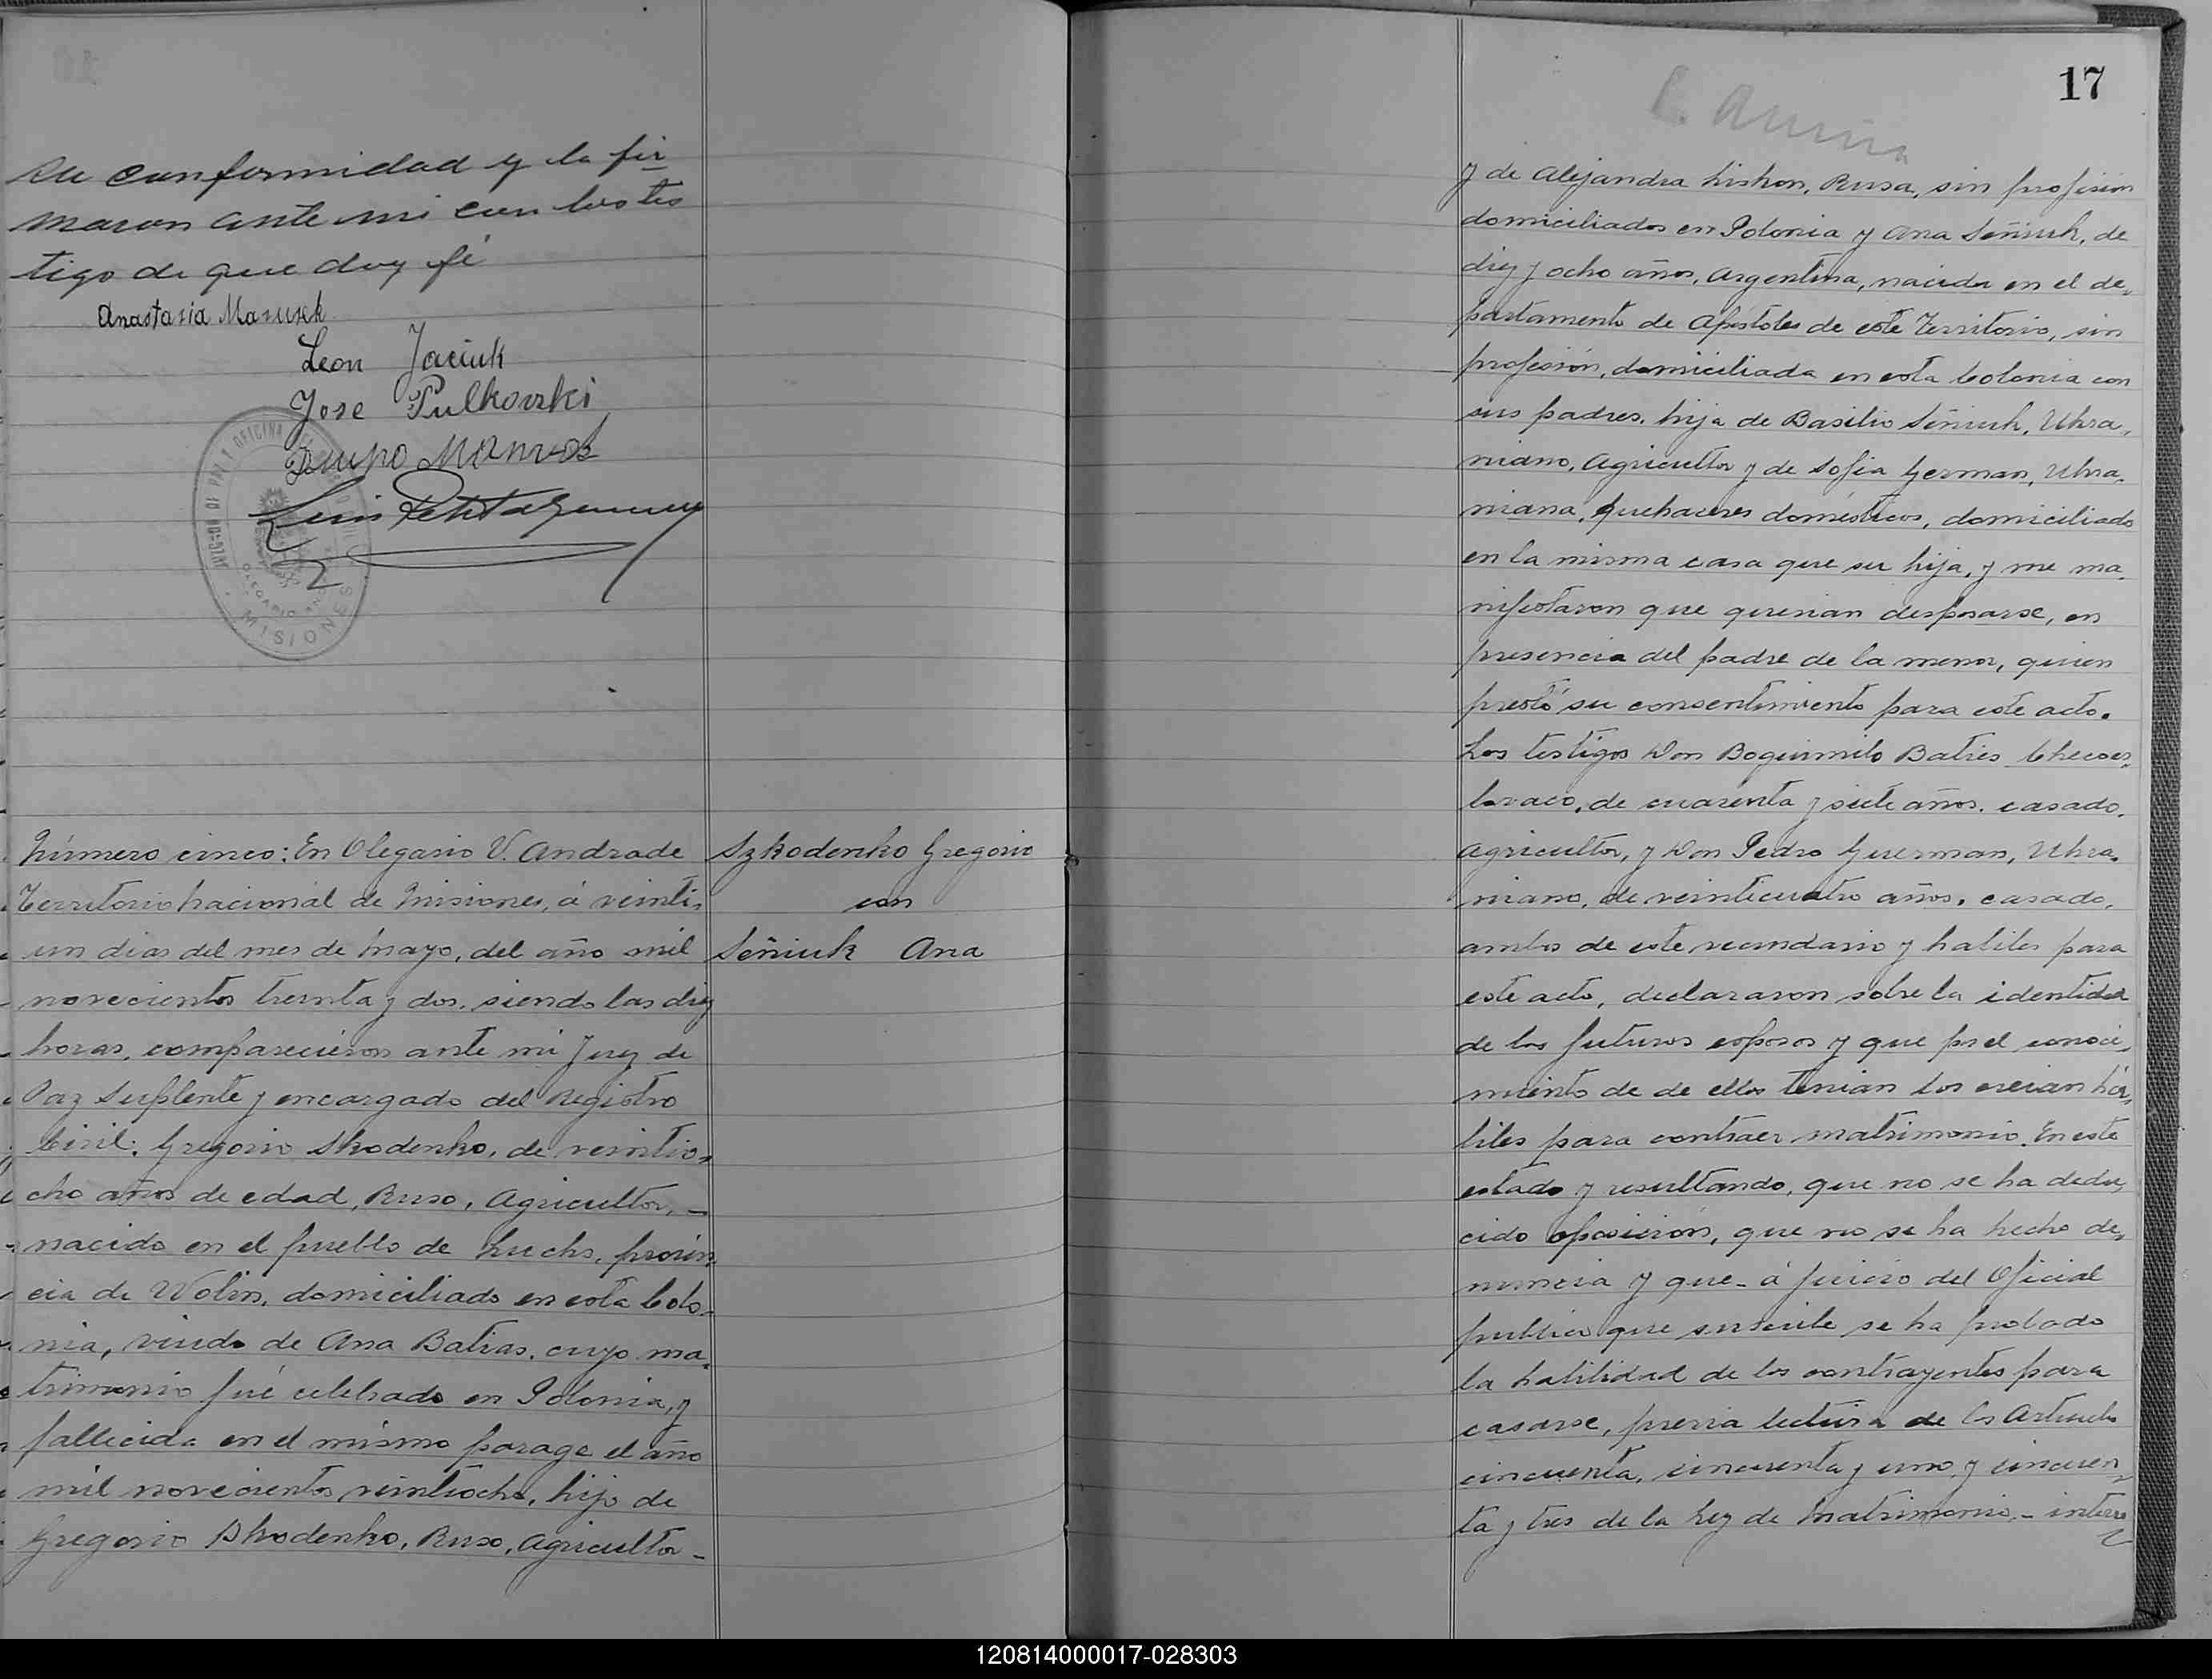 su conformidad y la fir
maron ante mi con los tes
tigo de que doy fé
Anastasia Mazurek
Leon Jaciuk
Jose Pulkovzki
Luis
MISIONES
Número cinco: En Olegario V. Andrade
Territorio Nacional de Misiones, á veinti-
un dias del mes de Mayo, del año mil
novecientos treinta y dos, siendo las diez
horas, comparecieron ante mi Juez de
Paz Suplente y encargado del Registro
Civil: Gregorio Skodenko, de veintio-
cho años de edad, Ruso, Agricultor, -
nacido en el pueblo de, provin-
cia de Wolin, domiciliado en esta Colo-
nia, viudo de Ana Batras, cuyo ma-
trimonio fué celebrado en Polonia, y
fallecida en el mismo parage el año
mil novecientos veintiocho, hijo de
Gregorio Skodenko, Ruso, Agricultor -
Szkodenko Gregorio
con
Señiuk Ana
17
y de Alejandra Liskon, Rusa, sin profision
domiciliados en Polonia y Ana Señiuk, de
diez y ocho años, Argentina, nacida en el de-
partamento de Apóstoles de este Territorio, sin
profesión, domiciliada en esta Colonia con
sus padres, hija de Basilio Señiuk, Ukra-
niano, Agricultor y de Sofia German, Ukra-
niana, quehaceres domésticos, domiciliado
en la misma casa que su hija, y me ma-
nifestaron que querian desposarse, en
presencia del padre de la menor, quien
prestó su consentimiento para este acto.
Los testigos Don Boguimilo Batries Checoes-
lovaco, de cuarenta y siete años, casado,
Agricultor, y Don Pedro Guerman, Ukra-
niano, de veinticuatro años, casado,
ambos de este vecindario y habiles para
este acto, declararon sobre la identidad
de los futuros esposos y que por el conoci-
miento de de ellos tenian los creian há-
biles para contraer matrimonio. En este
estado y resultando, que no se ha dedu-
cido oposición, que no se ha hecho de-
nuncia y que - á juicio del Oficial
publico que suscribe se ha probado
la habilidad de los contrayentes para
casarse, previa lectura de los Articulos
cincuenta, cincuenta y uno, y cincuen-
ta y tres de la Ley de Matrimonio, - interro
120814000017-028303